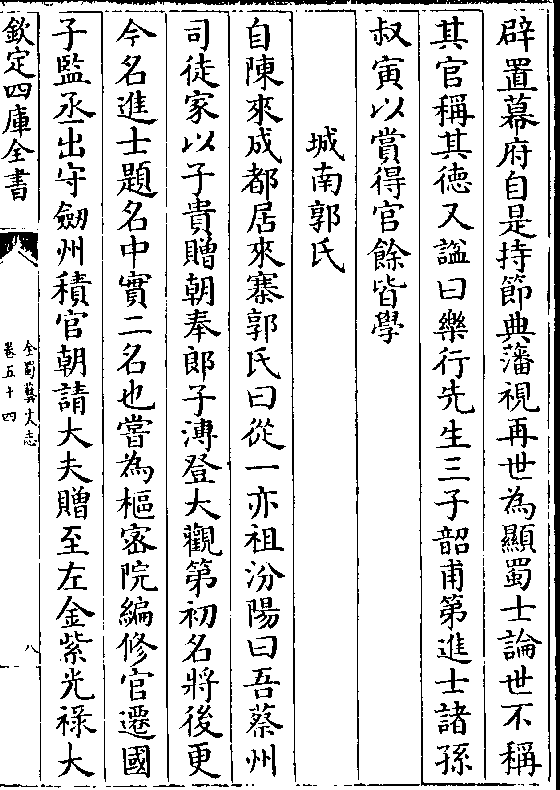 辟置幕府自是持節典藩視再世為顯蜀士論世不稱
其官稱其徳又諡曰樂行先生三子韶甫第進士諸孫
叔寅以賞得官餘皆學
城南郭氏
自陳來成都居來寨郭氏曰從一亦祖汾陽曰吾蔡州
司徒家以子貴贈朝奉郎子溥登大觀第初名將後更
今名進士題名中實二名也嘗為樞宻院編修官遷國
子監丞出守劒州積官朝請大夫贈至左金紫光禄大
欽定四庫全書
全蜀藝文志
卷五十四
八